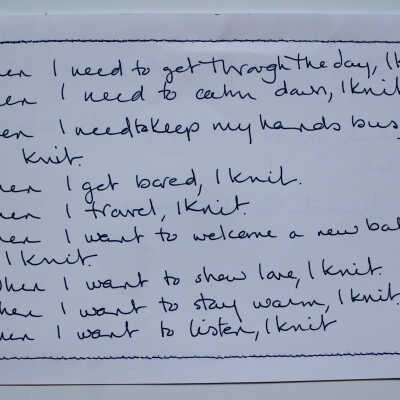 hen I need to get through the day, I k
hen I need to calm down, I knit
en I need to keep my hands bus
knit.
hen I get bored, I knit.
hen I travel, I knit.
hen I want to welcome a new ba
I knit.
When I want to show love, I knit.
hen I want to stay warm, I knit.
hen I want to listen, I knit